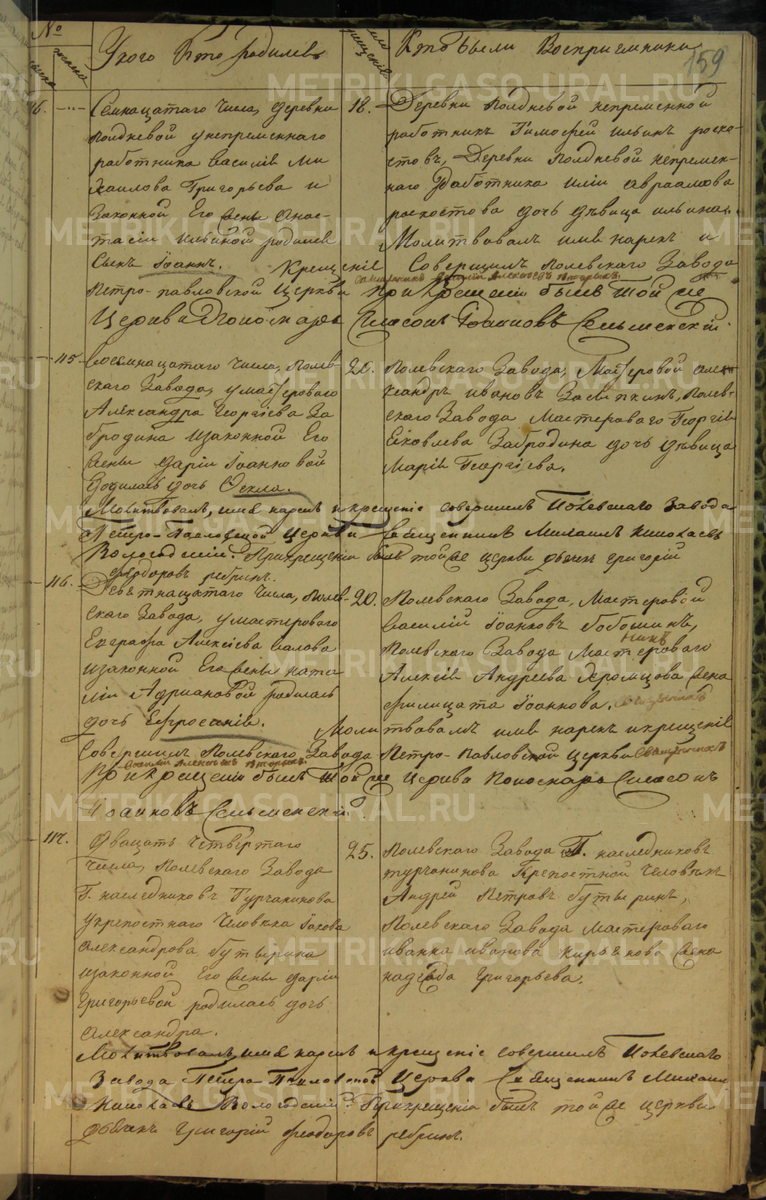 №
159
У кого Кто родился
Кто были Восприемники
METRIKI.GASO-URAL.RU
Семнацатаго Числа, деревни
полдневой унепременнаго
работника василья Ми
хаилова Григорьева и
Законной Его жены Анас-
тасии Ильиной родился
сынъ Іоаннъ.
18.
Деревни полдневой непременной
работникъ Тимофей ильинъ роско-
стовъ, Деревни полдневой непремен-
наго работника илии авраамова
роскостова дочь девица
Молитвовалъ имя нарекъ и
Крещеніе Совершилъ полевскаго Завода
Петро-павловской Церкви
При крещеніи былъ той же
Церкви Іоанновъ
115
Восемнацатаго числа, полев-
скаго Завода, умастероваго
Александра Георгіева За
бродина изаконной Его
жены дарьи Іоанновой
родилась дочь Фекла.
20.
Полевскаго Завода, Мастеровой алек-
сандръ ивановъ полев-
скаго Завода Мастероваго Георгія
Яковлева Забродина дочь девица
Марія Георгіева.
Молитвовалъ, имя нарекъ и крещеніе совершилъ Полевскаго Завода
Петро-Павловской Церкви Священникъ Михаилъ
При крещеніи былъ той же церкви дьячекъ григорій
федоровъ ребринъ.
116.
Девятнацатаго Числа, полев-
скаго Завода, умастероваго
Евграфа Алексіева
изаконной Его жены ната
ліи Адріановой родилась
дочь Ефросинія.
20.
Полевскаго Завода, Мастеровой
василій Іоанновъ
Полевскаго Завода Мастероваго
Алексія Андреева Хромцова жена
филицата Іоаннова.
Моли
твовалъ имя нарекъ и крещеніе
Совершилъ Полевскаго Завода Петро-Павловской Церкви Священникъ
При крещеніи былъ той же Церкви Пономарь
Іоанновъ
117.
Двацать четвертаго
числа, полевскаго Завода
Г. наследниковъ Турчанинова
укрепостнаго Человека Іакова
Александрова бутырина
изаконной Его жены дарьи
григорьевой родилась дочь
александра.
25.
Полевскаго Завода Г. наследниковъ
турчанинова крепостной человекъ
Андрей Петровъ бутыринъ,
Полевскаго Завода мастероваго
ивана иванова жена
надежда григорьева.
Молитвовалъ, имя нарекъ и крещеніе совершилъ Полевскаго
Завода Петро Павловской Церкви Священникъ Михаилъ
При крещеніи былъ той же церкви
дьячекъ григорій феодоровъ ребринъ.